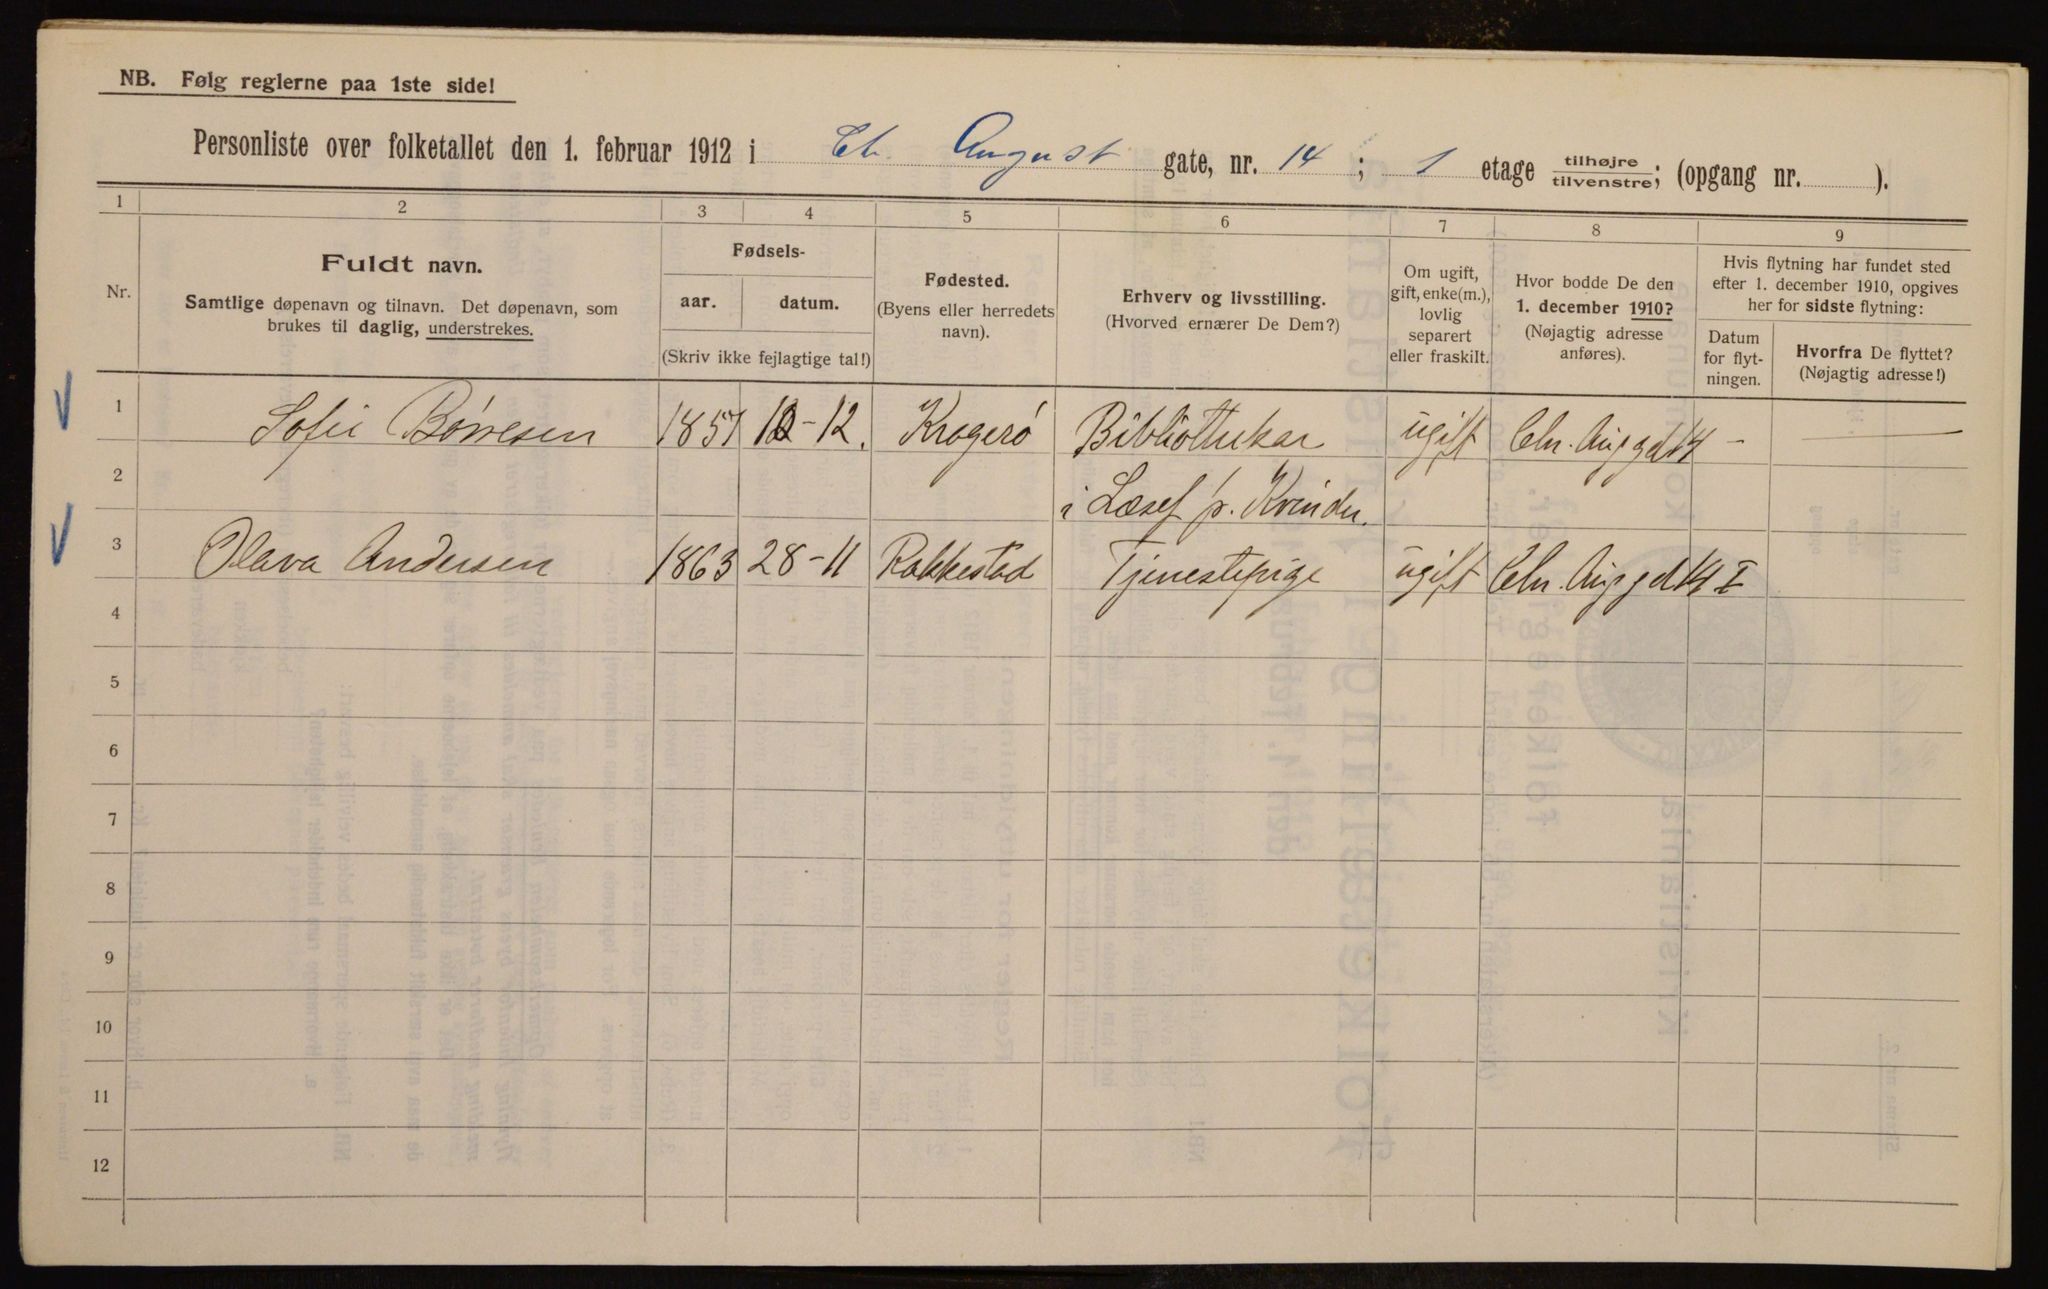 NB. Følg reglerne paa 1ste side!
Personliste over folketallet den 1. februar 1912 i Ch. August gate, nr. 14 ; 1 etage tilhøjre/tilvenstre; (opgang nr. ).
1 2 3 4 5 6 7 8 9
Nr.
Fuldt navn.
Samtlige døpenavn og tilnavn. Det døpenavn, som
brukes til daglig, understrekes.
Fødsels-
aar. datum.
(Skriv ikke fejlagtige tal!)
Fødested.
(Byens eller herredets
navn).
Erhverv og livsstilling.
(Hvorved ernærer De Dem?)
Om ugift,
gift, enke(m.),
lovlig
separert
eller fraskilt.
Hvor bodde De den
1. december 1910?
(Nøjagtig adresse
anføres).
Hvis flytning har fundet sted
efter 1. december 1910, opgives
her for sidste flytning:
Datum
for flyt-
ningen.
Hvorfra De flyttet?
(Nøjagtig adresse!)
1 Sofie Børresen 1857 -12. Kragerø Bibliothekar ugift Chr. Aug gd 14 -
2 i Læsef f. Kvinder.
3 Olava Andersen 1863 28-11 Rakkestad Tjenestepige ugift Chr. Aug gd 14 I
4
5
6
7
8
9
10
11
12